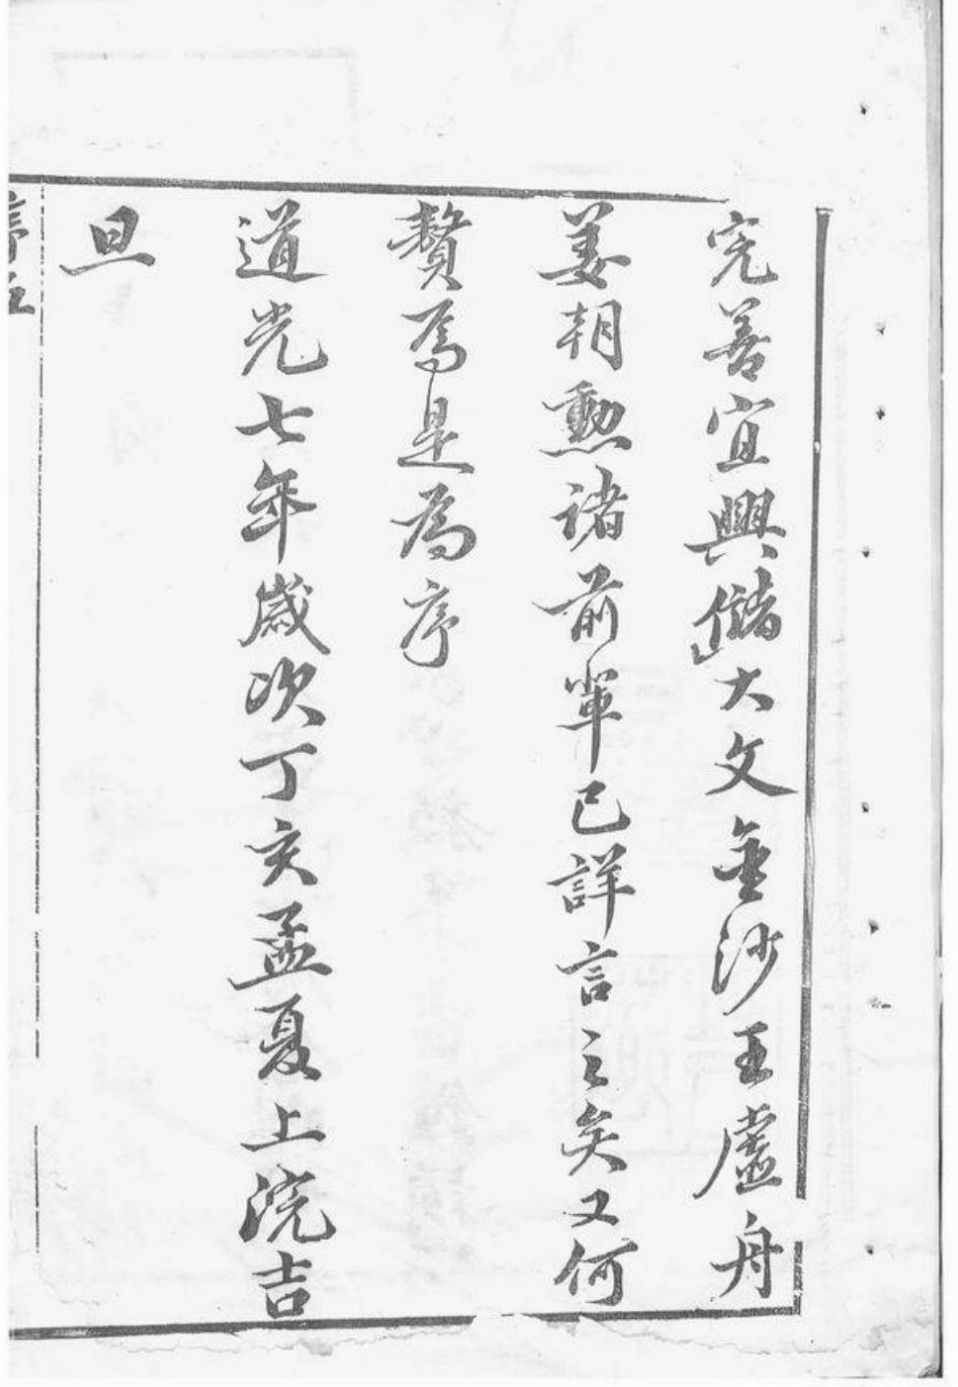 完善宜興儲大文金沙王虛舟
姜朝勲諸前軰已詳言之矣又何
贅焉是為序
道光七年歲次丁亥孟夏上浣吉
旦
序五